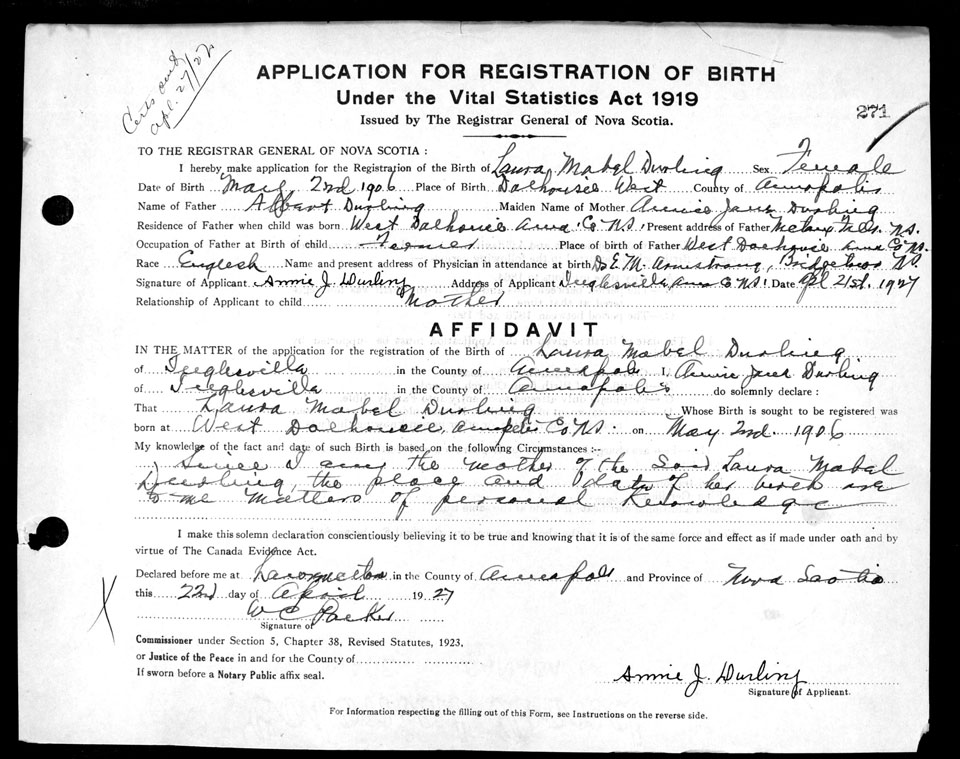 Certs sent
Apl. 27/27
APPLICATION FOR REGISTRATION OF BIRTH
Under the Vital Statistics Act 1919
Issued by The Registrar General of Nova Scotia.
271
TO THE REGISTRAR GENERAL OF NOVA SCOTIA :
I hereby make application for the Registration of the Birth of Laura Mabel Durling Sex Female
Date of Birth May 2nd 1906 Place of Birth Dalhousie West County of Annapolis
Name of Father Albert Durling Maiden Name of Mother Annie Jane Durling
Residence of Father when child was born West Dalhousie Anna. Co NS. Present address of Father N.S.
Occupation of Father at Birth of child Farmer Place of birth of Father West Dalhousie Anna Co NS.
Race English Name and present address of Physician in attendance at birth Dr E. M. Armstrong, Bridgetown NS.
Signature of Applicant Annie J. Durling Address of Applicant Inglesville, Anna Co NS! Date Apl 21st. 1927
Relationship of Applicant to child Mother
AFFIDAVIT
IN THE MATTER of the application for the registration of the Birth of Laura Mabel Durling
of Inglesville in the County of Annapolis I, Annie Jane Durling
of Inglesville in the County of Annapolis do solemnly declare :
That Laura Mabel Durling Whose Birth is sought to be registered was
born at West Dalhousie, Annapolis Co NS. on May 2nd. 1906
My knowledge of the fact and date of such Birth is based on the following Circumstances :-
Since I am the mother of the said Laura Mabel
Durling, the place and date of her birth are
to me matters of personal knowledge
I make this solemn declaration conscientiously believing it to be true and knowing that it is of the same force and effect as if made under oath and by
virtue of The Canada Evidence Act.
Declared before me at Lawrencetown in the County of Annapolis and Province of Nova Scotia
this 22nd day of April 1927
W C Parker
Signature of
Commissioner under Section 5, Chapter 38, Revised Statutes, 1923,
or Justice of the Peace in and for the County of
If sworn before a Notary Public affix seal.
Annie J. Durling
Signature of Applicant.
For Information respecting the filling out of this Form, see Instructions on the reverse side.